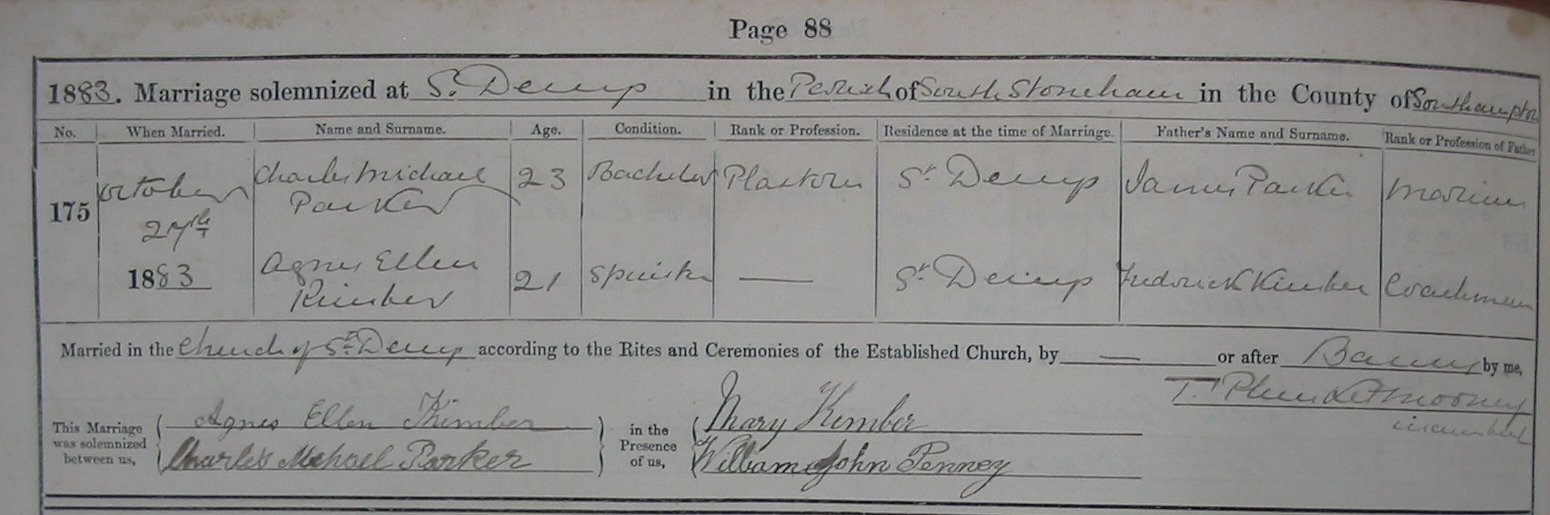 Page 88
1883. Marriage solemnized at St. Denys in the Parish of South Stoneham in the County of Southampton
No. When Married. Name and Surname. Age. Condition. Rank or Profession. Residence at the time of Marriage. Father's Name and Surname. Rank or Profession of Father
175 October 27th 1883 Charles Michael Parker 23 Bachelor Plasterer St. Denys James Parker Mariner
Agnes Ellen Kimber 21 Spinster — St. Denys Frederick Kimber Coachman
Married in the Church of St. Denys according to the Rites and Ceremonies of the Established Church, by — or after Banns by me,
T.
incumbent
This Marriage was solemnized between us, Agnes Ellen Kimber
Charles Michael Parker
in the Presence of us, Mary Kimber
William John Penney